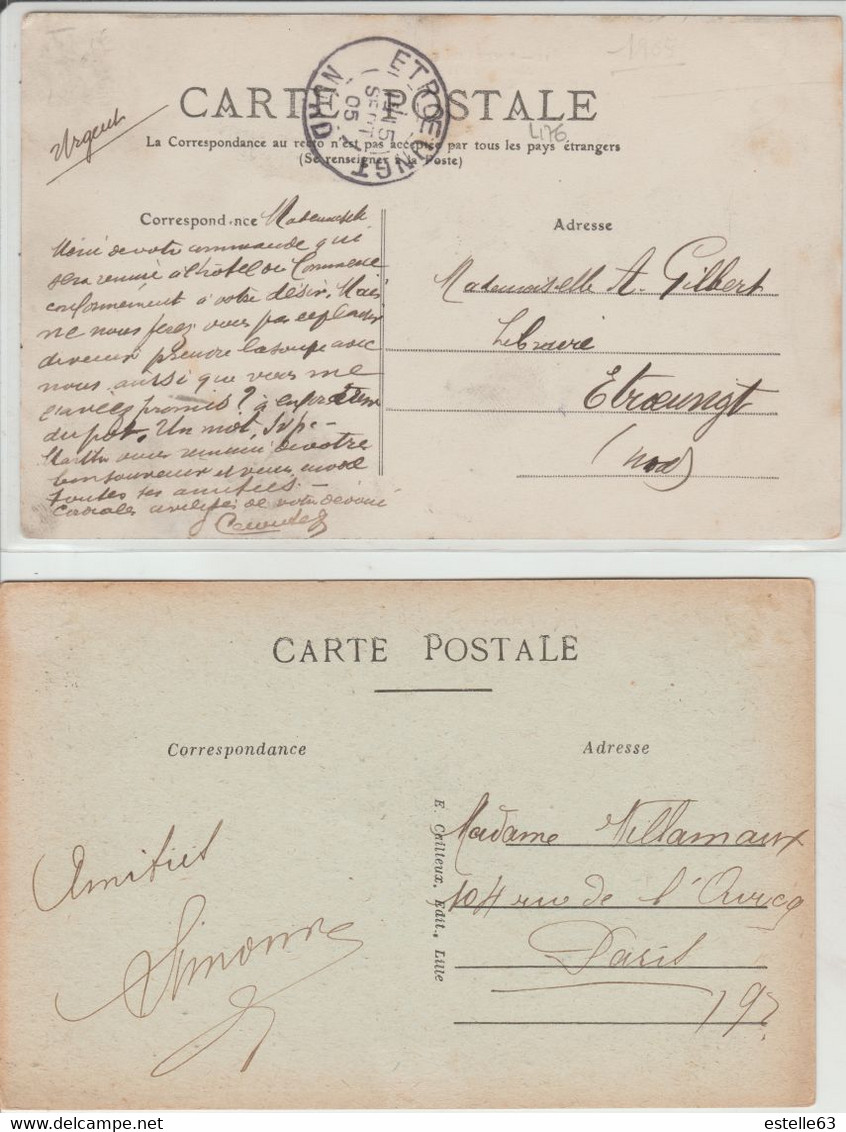 1905
CARTE POSTALE
ETROEUNGT
5
SEPT
05
NORD
4176
Urgent
La Correspondance au recto n'est pas acceptée par tous les pays étrangers
(Se renseigner à la Poste)
Correspondance Mademoiselle
Adresse
Merci de votre commande qui
sera remise à l'hôtel du Commerce
conformément à votre désir. Mais
ne nous ferez vous pas le plaisir
de venir prendre la soupe avec
nous aussi que vous me
l'aviez promis? à la fortune
du pot. Un mot, svp -
Martha vous remercie de votre
bon souvenir et vous envoie
toutes ses amitiés -
Cordiales civilités de votre dévoué
Mademoiselle A. Gilbert
Libraire
Etroeungt
(Nord)
CARTE POSTALE
Correspondance
Adresse
Amitiés
Simonne
E. Cailteux, Edit., Lille
Madame Villamaux
104 rue de l'Ourcq
Paris
19e
estelle63